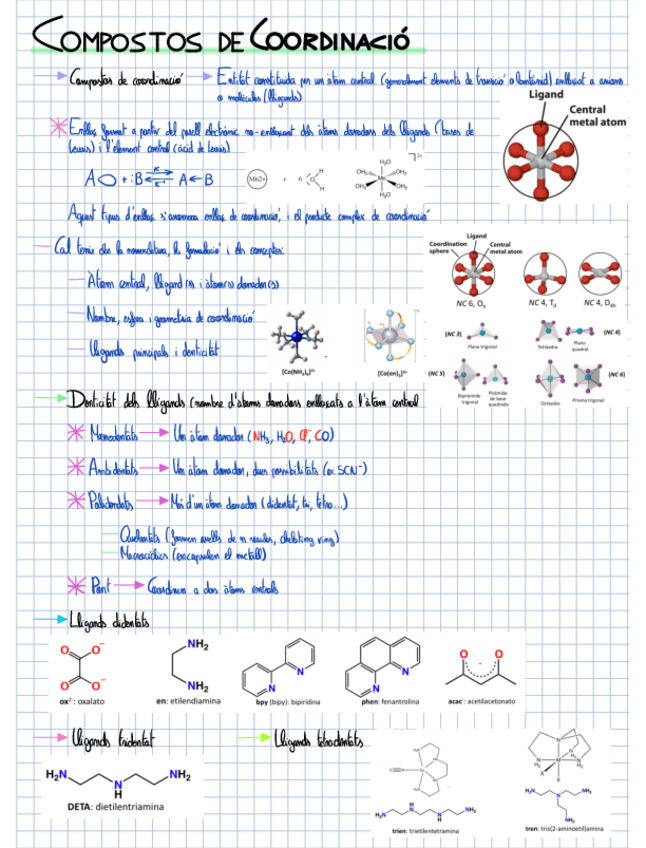 COMPOSTOS DE COORDINACIÓ
Compostos de coordinació → Entitat constituida per un àtom central (generalment elements de transició o lantànid) enllaçat a anions
o molècules (lligands)
Ligand
Central
metal atom
Enllaç format a partir del parell electrònic no-enllaçant dels àtoms donadors dels lligands (bases de
Lewis) i l'element central (àcid de Lewis)
A + :B A←B
Mn2+ + 6
H
H
H₂O
OH₂ OH₂
Mn
OH₂ OH₂
H₂O
2+
Aquest tipus d'enllaç s'anomena enllaç de coordinació, i el producte complex de coordinació
Cal tenir clar la nomenclatura, la formulació i els conceptes:
Coordination
sphere
Ligand
Central
metal atom
NC 6, Oh
NC 4, Td
NC 4, D4h
Àtom central, lligand(s) i àtom(s) donador(s)
Nombre, esfera i geometria de coordinació
Lligands principals i denticitat
[Co(NH₃)₆]³⁺
[Co(en)₃]³⁺
(NC 3)
Plana trigonal
Tetràedre
Plano
quadrat
(NC 4)
(NC 5)
Bipiràmide
trigonal
Piràmide
de base
quadrada
Octàedre
Prisma trigonal
(NC 6)
Denticitat dels lligands (nombre d'àtoms donadors enllaçats a l'àtom central
Monodentats → Un àtom donador (NH₃, H₂O, Cl⁻, CO)
Ambidentats → Un àtom donador, dues possibilitats (ex. SCN⁻)
Polidentats → Més d'un àtom donador (didentat, tri, tetra...)
Quelantats (formen anells de n vèrtexs, chelating ring)
Macrocíclics (encapsulen el metall)
Pont → Coordinen a dos àtoms centrals
Lligands didentats
O O⁻
O O⁻
ox²⁻: oxalato
NH₂
NH₂
en: etilendiamina
N
N
bpy (bipy): bipiridina
N
N
phen: fenantrolina
O O
acac⁻: acetilacetonato
Lligands tridentat
H₂N
N
H
NH₂
DETA: dietilentriamina
Lligands tetradentats
trien: trietilentetramina
tren: tris(2-aminoetil)amina